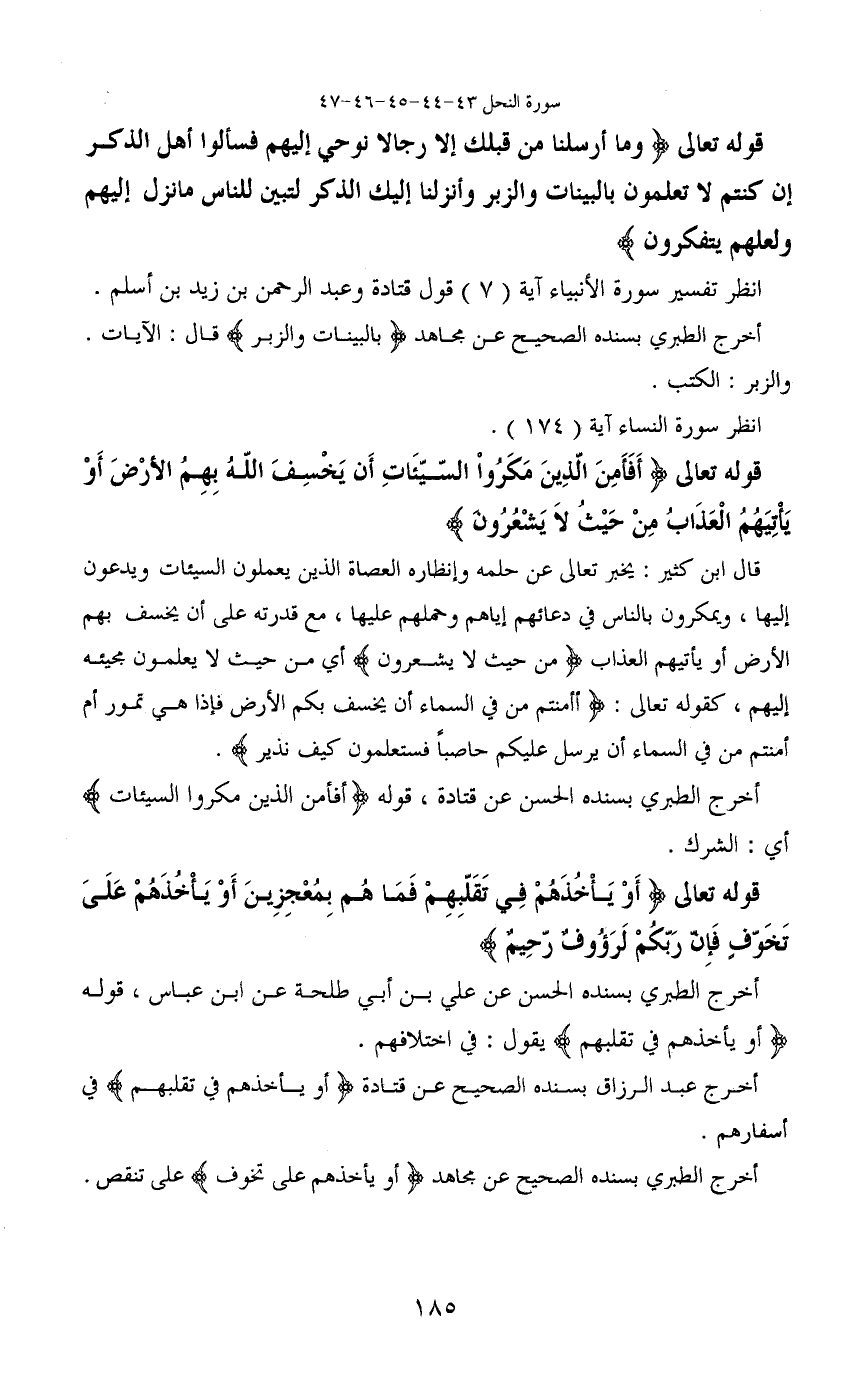 سورة النحل ٤٣-٤٤-٤٥-٤٦-٤٧
قوله تعالى ﴿ وما أرسلنا من قبلك إلا رجالا نوحي إليهم فسألوا أهل الذكر
إن كنتم لا تعلمون بالبينات والزبر وأنزلنا إليك الذكر لتبين للناس مانزل إليهم
ولعلهم يتفكرون ﴾
انظر تفسير سورة الأنبياء آية ( ٧ ) قول قتادة وعبد الرحمن بن زيد بن أسلم .
أخرج الطبري بسنده الصحيح عن مجاهد ﴿ بالبينات والزبر ﴾ قال : الآيات .
والزبر : الكتب .
انظر سورة النساء آية ( ١٧٤ ) .
قوله تعالى ﴿ أَفَأَمِنَ الَّذِينَ مَكَرُواْ السَّيِّئَاتِ أَن يَخْسِفَ اللّهُ بِهِمُ الأرْضَ أَوْ
يَأْتِيَهُمُ الْعَذَابُ مِنْ حَيْثُ لاَ يَشْعُرُونَ ﴾
قال ابن كثير : يخبر تعالى عن حلمه وإنظاره العصاة الذين يعملون السيئات ويدعون
إليها ، ويمكرون بالناس في دعائهم إياهم وحملهم عليها ، مع قدرته على أن يخسف بهم
الأرض أو يأتيهم العذاب ﴿ من حيث لا يشعرون ﴾ أي من حيث لا يعلمون مجيئه
إليهم ، كقوله تعالى : ﴿ أأمنتم من في السماء أن يخسف بكم الأرض فإذا هي تمور أم
أمنتم من في السماء أن يرسل عليكم حاصباً فستعلمون كيف نذير ﴾ .
أخرج الطبري بسنده الحسن عن قتادة ، قوله ﴿ أفأمن الذين مكروا السيئات ﴾
أي : الشرك .
قوله تعالى ﴿ أَوْ يَأْخُذَهُمْ فِي تَقَلّبِهِمْ فَمَا هُم بِمُعْجِزِينَ أَوْ يَأْخُذَهُمْ عَلَىَ
تَخَوّفٍ فَإِنّ رَبّكُمْ لَرَؤُوفٌ رّحِيمٌ ﴾
أخرج الطبري بسنده الحسن عن علي بن أبي طلحة عن ابن عباس ، قوله
﴿ أو يأخذهم في تقلبهم ﴾ يقول : في اختلافهم .
أخرج عبد الرزاق بسنده الصحيح عن قتادة ﴿ أو يأخذهم في تقلبهم ﴾ في
أسفارهم .
أخرج الطبري بسنده الصحيح عن مجاهد ﴿ أو يأخذهم على تخوف ﴾ على تنقص .
١٨٥